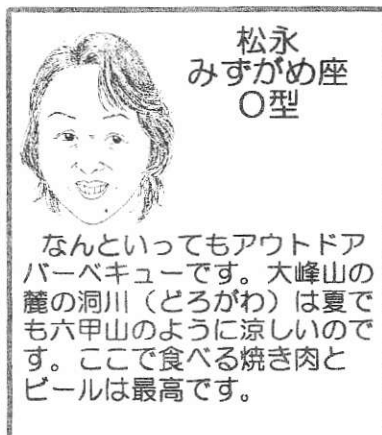 松永
みずがめ座
O型
なんといってもアウトドア
バーベキューです。大峰山の
麓の洞川（どろがわ）は夏で
も六甲山のように涼しいので
す。ここで食べる焼き肉と
ビールは最高です。